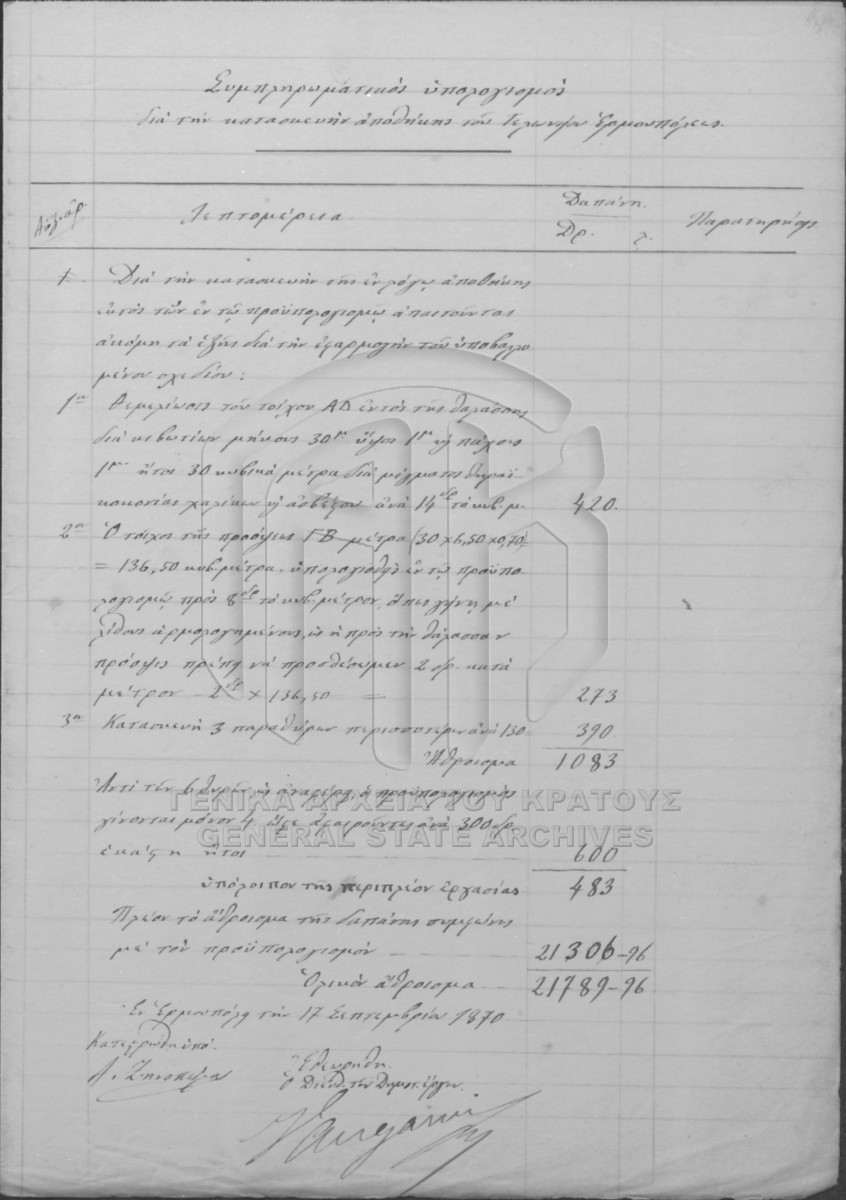 Συμπληρωματικός ὑπολογισμός
διά τήν κατασκευήν ἀποθήκης τοῦ Τελωνείου Ἑρμουπόλεως.
Αὔξ. ἀρ. Λεπτομέρεια Δαπάνη. Παρατηρήσεις
Δρ. λ.
Διά τήν κατασκευήν τῆς ἐν λόγῳ ἀποθήκης
ἐκτός τῶν ἐν τῷ προϋπολογισμῷ ἀπαιτοῦνται
ἀκόμη τά ἑξῆς διά τήν ἐφαρμογήν τοῦ ὑποβαλλο
μένου σχεδίου:
1ον Θεμελίωσις τοῦ τοίχου ΑΔ ἐντός τῆς θαλάσσης
διά κιβωτίων μήκους 30μ ὕψος 1μ καί πάχους
1μ ἤτοι 30 κυβικά μέτρα διά μίγματος θηραϊ
κοκονίας χαλίκων καί ἀσβέστου ἀνά 14δρ τό κυβ. μ. 420.
2ον Ὁ τοῖχος τῆς προσόψεως ΓΒ μέτρα (30 x 6,50 x 0,70)
= 136,50 κυβ. μέτρα. ὑπολογισθείς ἐν τῷ προϋπο
λογισμῷ πρός 8δρ τό κυβ. μέτρον, ὅπως γίνῃ μέ
λίθους ἁρμολογημένους, ὡς ἡ πρός τήν θάλασσαν
πρόσοψις πρέπει νά προσθέσωμεν 2 δρ. κατά
μέτρον 2δρ x 136,50 = 273
3ον Κατασκευή 3 παραθύρων περισσοτέρων ἀνά 130 390
Ἄθροισμα 1083
Ἀντί τῶν 6 θυρῶν ὡς ἀναφέρει ὁ προϋπολογισμός
γίνονται μόνον 4 ὥστε ἀφαιροῦνται ἀνά 300 δρ.
ἑκάστη ἤτοι 600
ὑπόλοιπον τῆς περιπλέον ἐργασίας 483
Πλέον τό ἄθροισμα τῆς δαπάνης συμφώνως
μέ τόν προϋπολογισμόν 21306-96
Ὁλικόν ἄθροισμα 21789-96
Ἐν Ἑρμουπόλει τήν 17 Σεπτεμβρίου 1870
Κατεστρώθη ὑπό.
Ἐθεωρήθη
Ὁ Διευθ. τῶν Δημοσ. ἔργων.
ΓΕΝΙΚΑ ΑΡΧΕΙΑ ΤΟΥ ΚΡΑΤΟΥΣ
GENERAL STATE ARCHIVES